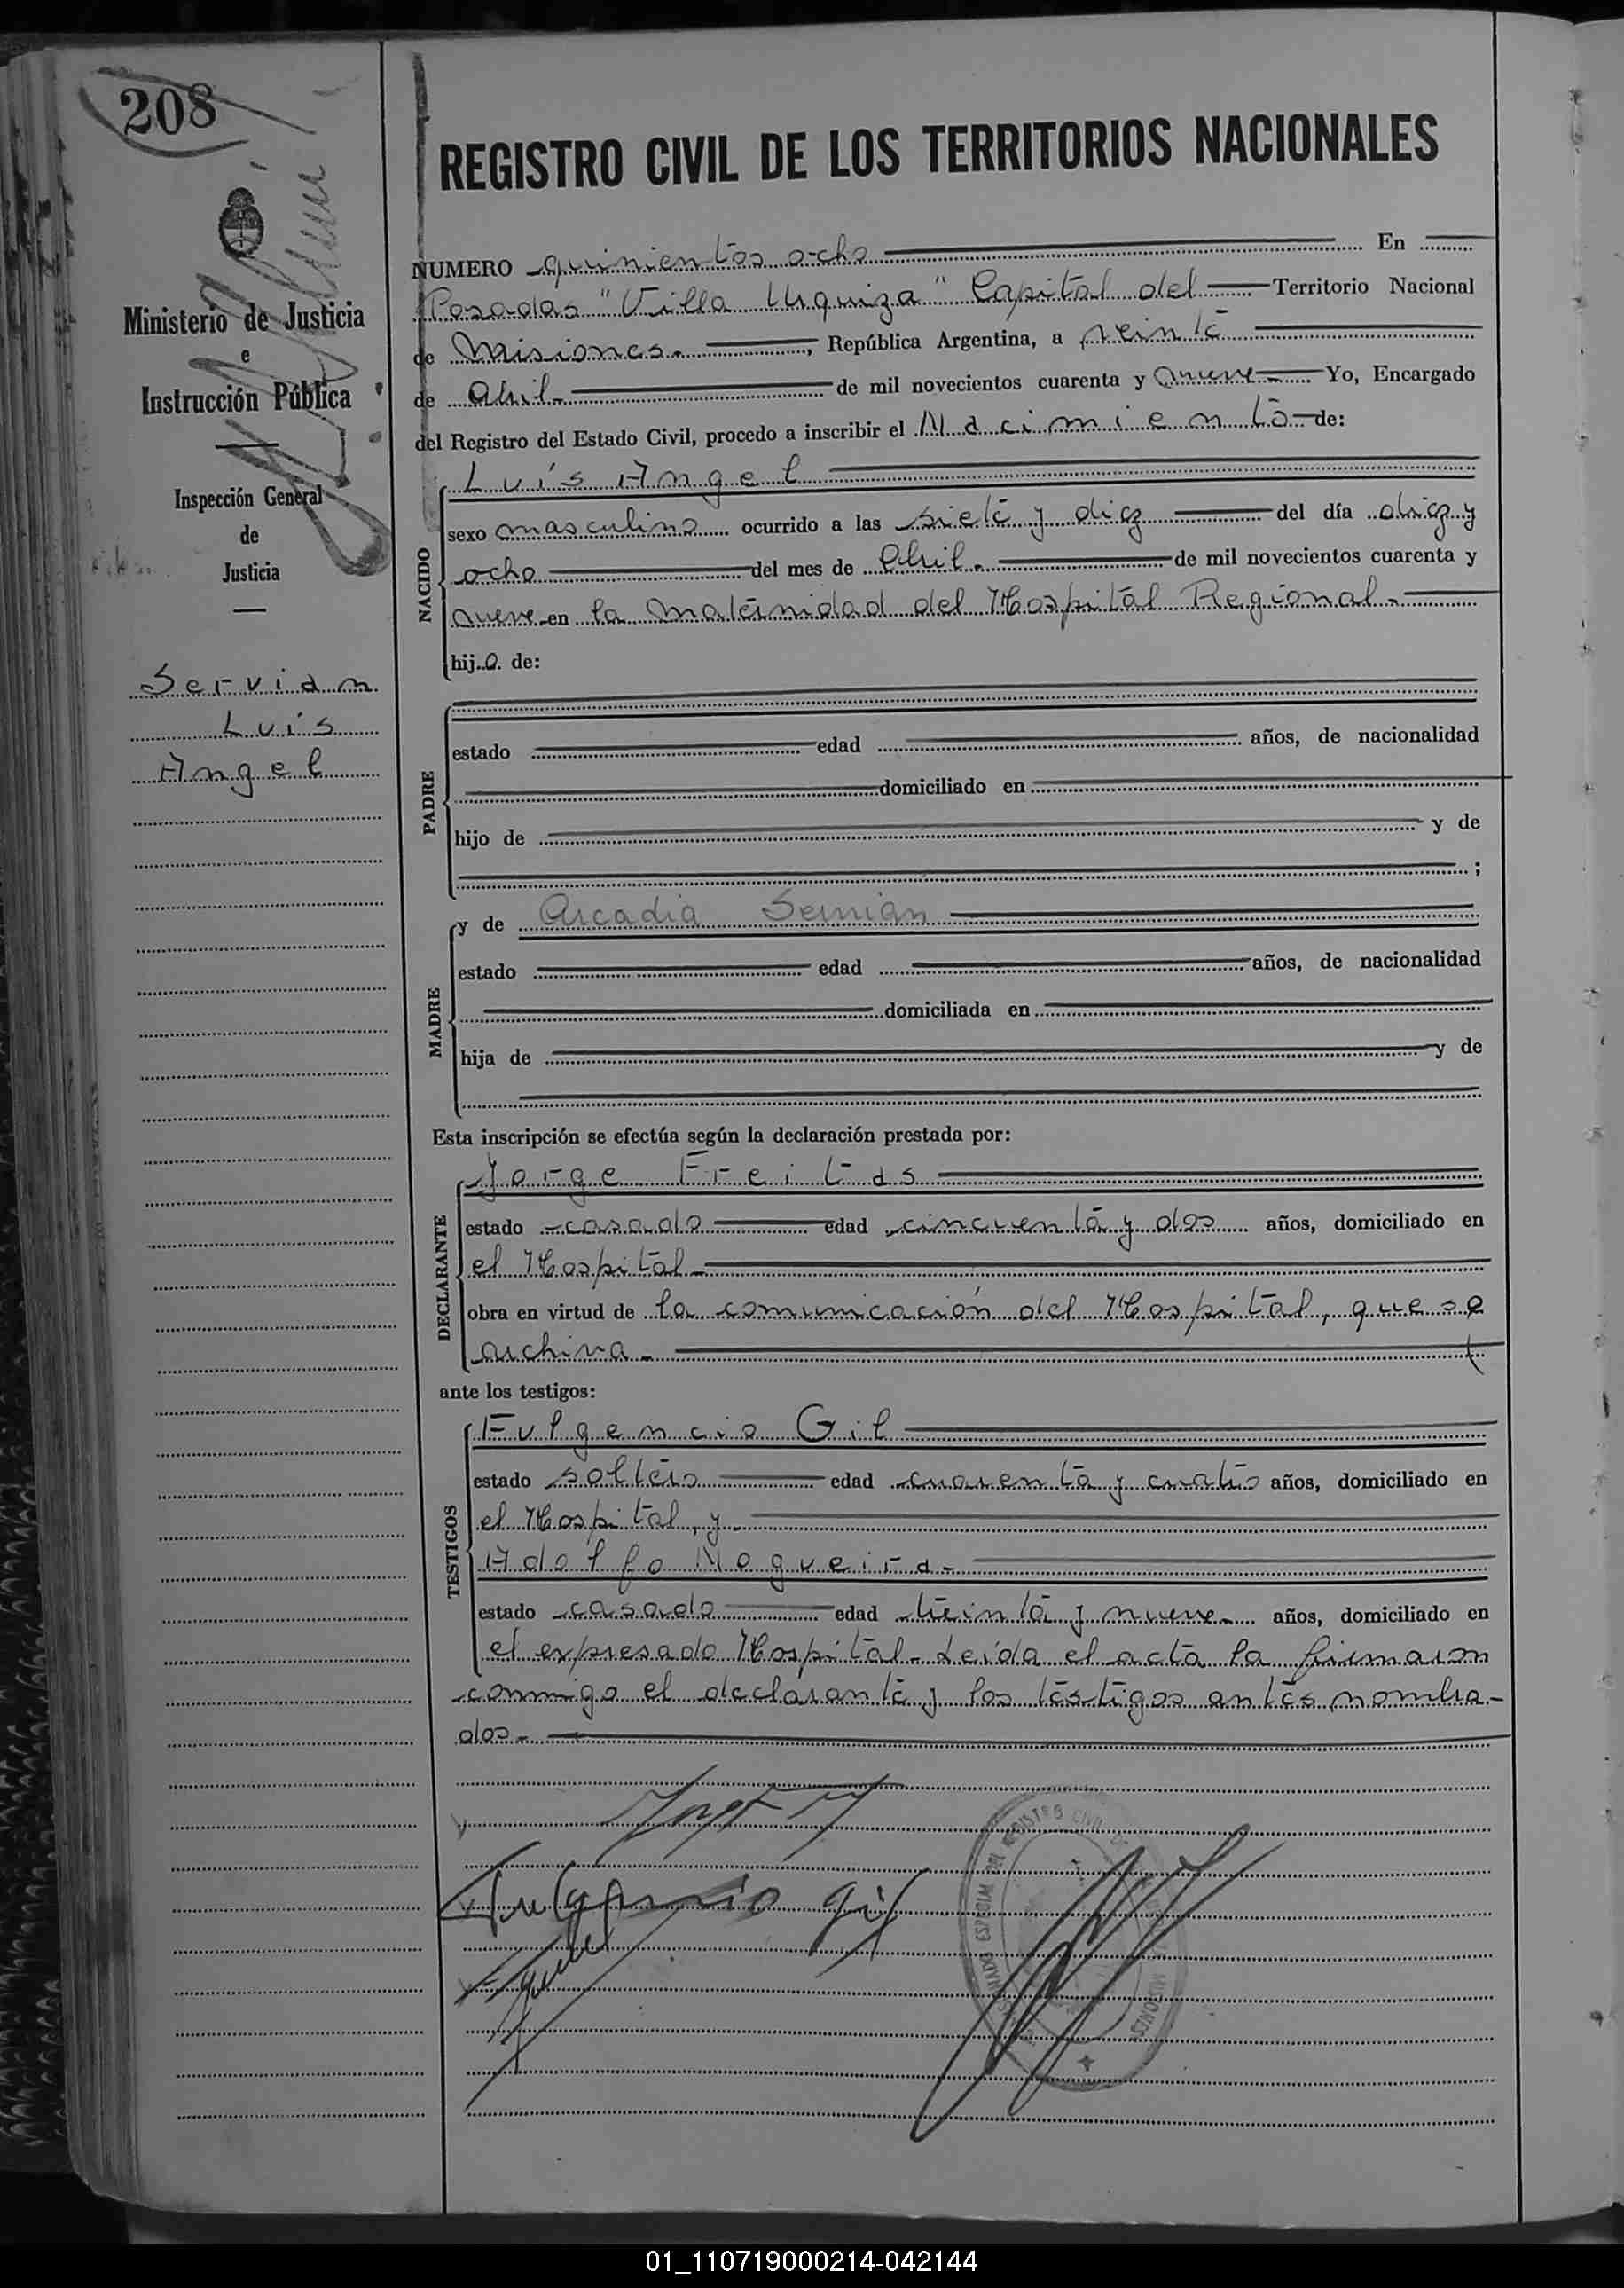 208
REGISTRO CIVIL DE LOS TERRITORIOS NACIONALES
Ministerio de Justicia
e
Instrucción Pública
Inspección General
de
Justicia
Servian
Luis
Angel
NUMERO quinientos ocho En
Posadas "Villa Urquiza" Capital del Territorio Nacional
de Misiones. , República Argentina, a veinte
de Abril de mil novecientos cuarenta y nueve Yo, Encargado
del Registro del Estado Civil, procedo a inscribir el Nacimiento de:
NACIDO
Luis Angel
sexo masculino ocurrido a las siete y diez del día diez y
ocho del mes de Abril. de mil novecientos cuarenta y
nueve en la Maternidad del Hospital Regional.
hijo de:
PADRE
estado edad años, de nacionalidad
domiciliado en
hijo de y de
;
MADRE
y de Arcadia Servian
estado edad años, de nacionalidad
domiciliada en
hija de y de
Esta inscripción se efectúa según la declaración prestada por:
DECLARANTE
Jorge Freitas
estado casado edad cincuenta y dos años, domiciliado en
el Hospital
obra en virtud de la comunicación del Hospital, que se
archiva.
ante los testigos:
TESTIGOS
Fulgencio Gil
estado soltero edad cuarenta y cuatro años, domiciliado en
el Hospital, y
Adolfo Nogueira.
estado casado edad treinta y nueve años, domiciliado en
el expresado Hospital. Leída el acta la firmaron
conmigo el declarante y los testigos antes nombra-
dos.
Fulgencio Gil
DEL REGISTRO CIVIL
MISIONES
01_110719000214-042144